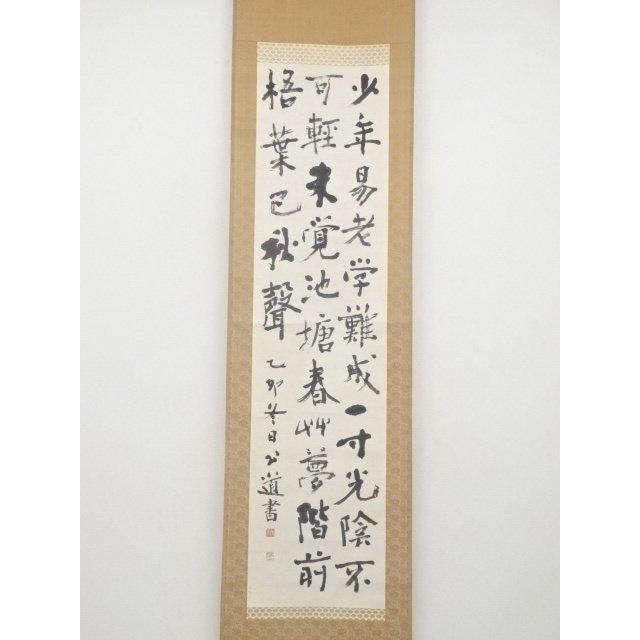 少年易老学難成一寸光陰不
可輕未覚池塘春艸夢階前
梧葉已秋聲
乙卯冬日公道書